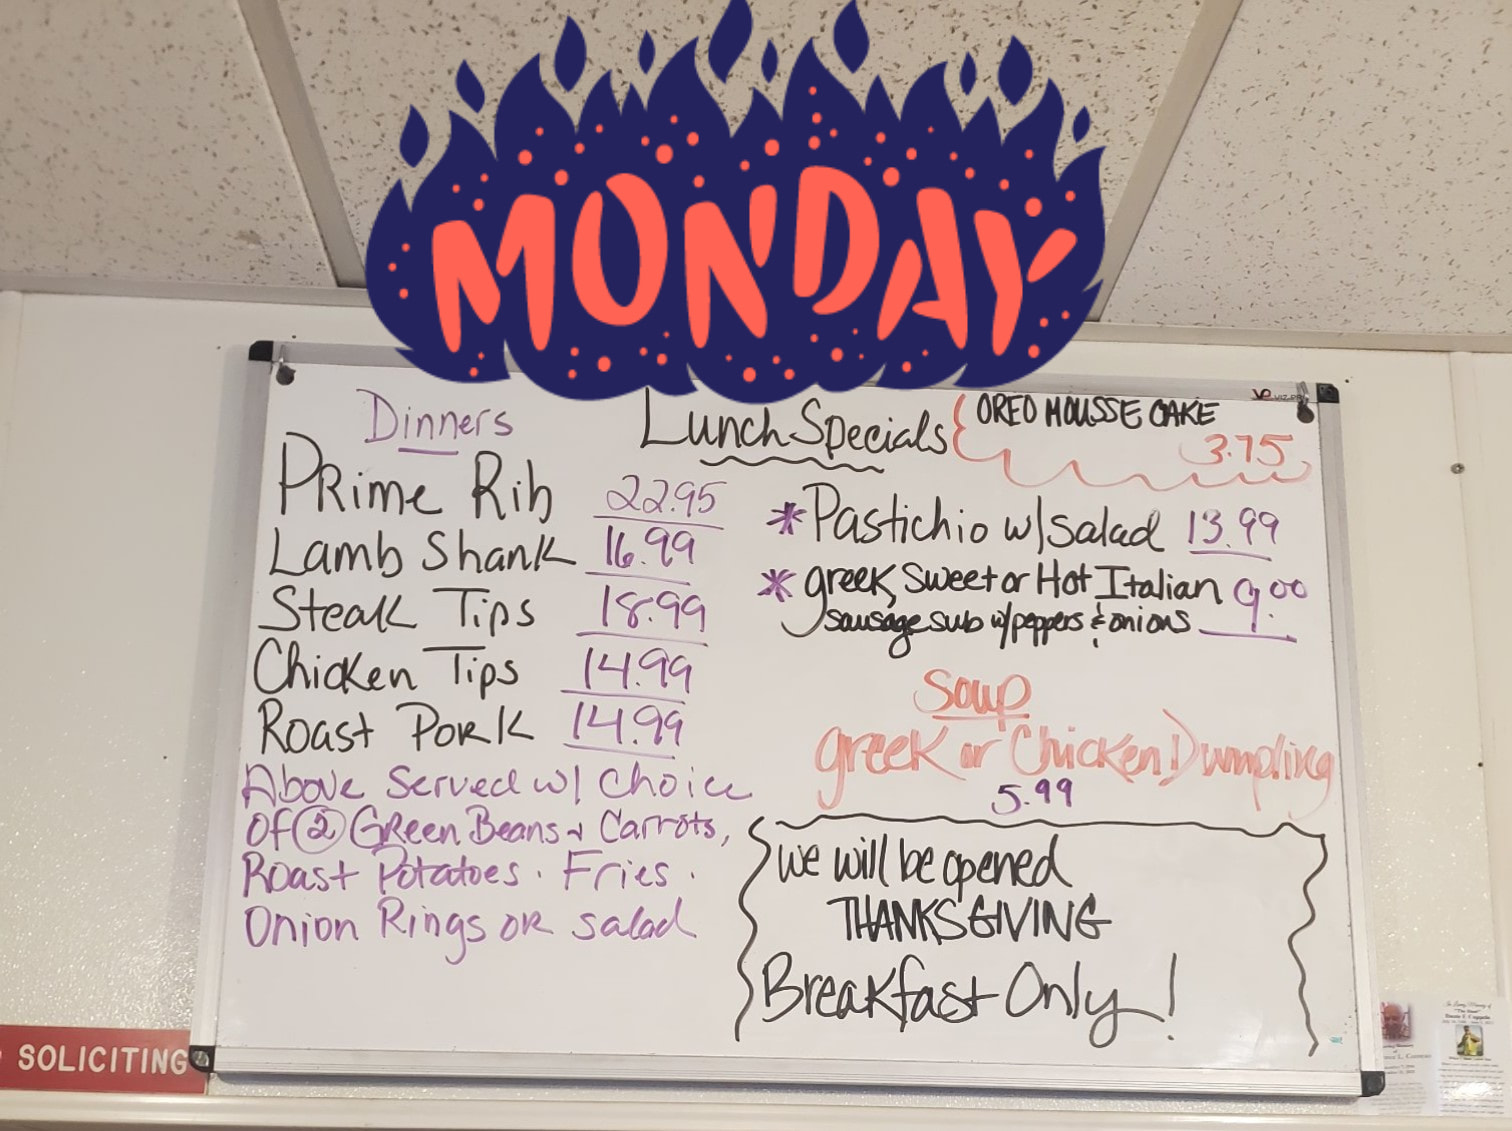 MONDAY
Dinners
Prime Rib 22.95
Lamb Shank 16.99
Steak Tips 18.99
Chicken Tips 14.99
Roast Pork 14.99
Above Served w/ Choice
Of ② Green Beans + Carrots,
Roast Potatoes . Fries .
Onion Rings or salad
Lunch Specials
OREO MOUSSE CAKE
3.75
* Pastichio w/ Salad 13.99
* greek, Sweet or Hot Italian 9.00
sausage sub w/ peppers & onions
Soup
greek or Chicken Dumpling
5.99
We will be opened
THANKSGIVING
Breakfast Only!
SOLICITING